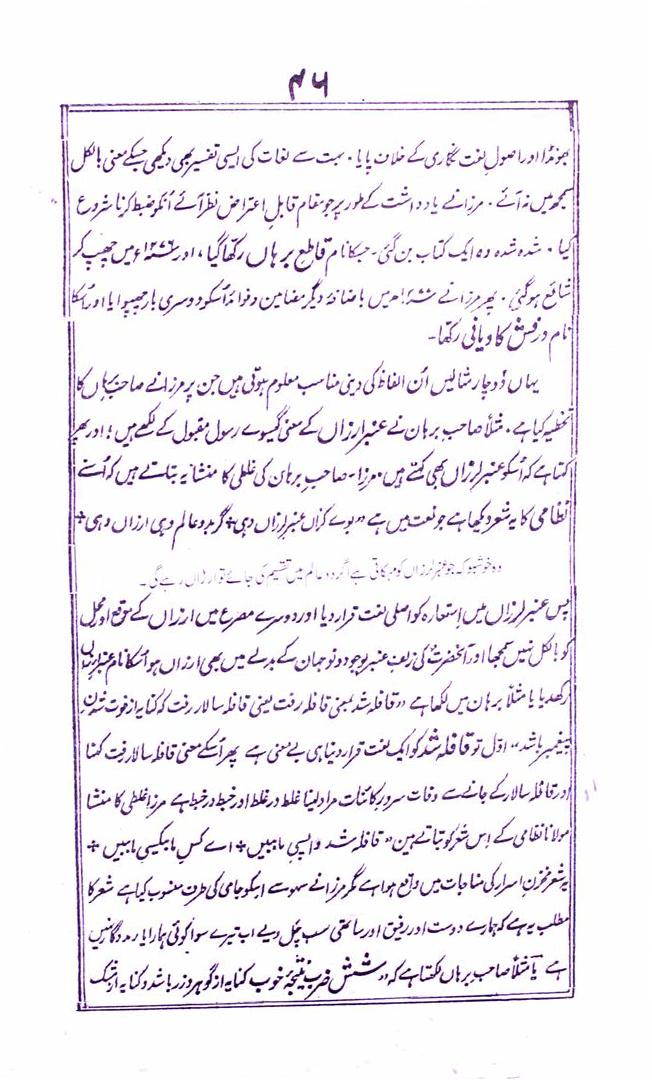 ۴۶
بھونڈا اور اصول لغت نگاری کے خلاف پایا۔ بہت سے لغات کی ایسی تفسیر بھی دیکھی جسکے معنی بالکل
سمجھ میں نہ آئے۔ مرزا نے یادداشت کے طور پر جو مقام قابل اعتراض نظر آئے اُنکو ضبط کرنا شروع
کیا۔ شدہ شدہ وہ ایک کتاب بن گئی۔ جسکا نام قاطع برہاں رکھا گیا، اور ۱۲۷۶ھ میں چھپ کر
شائع ہو گئی۔ پھر مرزا نے ۱۲۷۷ھ میں باضافۂ دیگر مضامین و فوائد اُسکو دوسری بار چھپوایا اور اُسکا
نام درفش کاویانی رکھا۔
یہاں دو چار مثالیں اُن الفاظ کی دینی مناسب معلوم ہوتی ہیں جن پر مرزا نے صاحب برہاں کا
تخطیہ کیا ہے۔ مثلاً صاحب برہان نے عنبر ارزاں کے معنی گیسوے رسول مقبول کے لکھے ہیں؛ اور پھر
کہتا ہے کہ اُسکو عنبر لرزاں بھی کہتے ہیں۔ مرزا۔ صاحب برہان کی غلطی کا منشا یہ بتاتے ہیں کہ اُسنے
نظامی کا یہ شعر دیکھا ہے جو نعت میں ہے "بوے کزاں عنبر لرزاں دہی + گر بدو عالم دہی ارزاں دہی +
وہ خوشبو کہ جو عنبر لرزاں کو مہکاتی ہے اگر دو عالم میں تقسیم کی جائے تو ارزاں رہے گی۔
پس عنبر لرزاں میں استعارہ کو اصلی لغت قرار دیا اور دوسرے مصرع میں ارزاں کے موقع اور محل
کو بالکل نہیں سمجھا اور آنحضرتؐ کی زلف عنبر بو جو دونوجہان کے بدلے میں بھی ارزاں ہو اُسکا نام عنبر ارزاں
رکھدیا یا مثلاً برہان میں لکھا ہے "قافلہ شد بمعنی قافلہ رفت یعنی قافلہ سالار رفت کہ کنایہ از فوت شدن
پیغمبر باشد" اول تو قافلہ شد کو ایک لغت قرار دینا ہی بے معنی ہے پھر اُسکے معنی قافلہ سالار رفت کہنا
اور قافلہ سالار کے جانے سے وفات سرور کائنات مراد لینا غلط در غلط اور خبط در خبط ہے مرزا غلطی کا منشا
مولانا نظامی کے اِس شعر کو بتاتے ہین "قافلہ شد واپسی ما ببیں + اے کس ما بیکسی ما ببیں +
یہ شعر مخزن اسرار کی مناجات میں واقع ہوا ہے مگر مرزا نے سہو سے اسکو جامی کی طرف منسوب کیا ہے شعر کا
مطلب یہ ہے کہ ہمارے دوست اور رفیق اور ساتھی سب چل دیے اب تیرے سوا کوئی ہمارا یار مددگار نہیں
ہے یا مثلاً صاحب برہاں لکھتا ہے کہ "شش ضرب نتیجۂ خوب کنایہ از گوہر و زر باشد و کنایہ از مشک